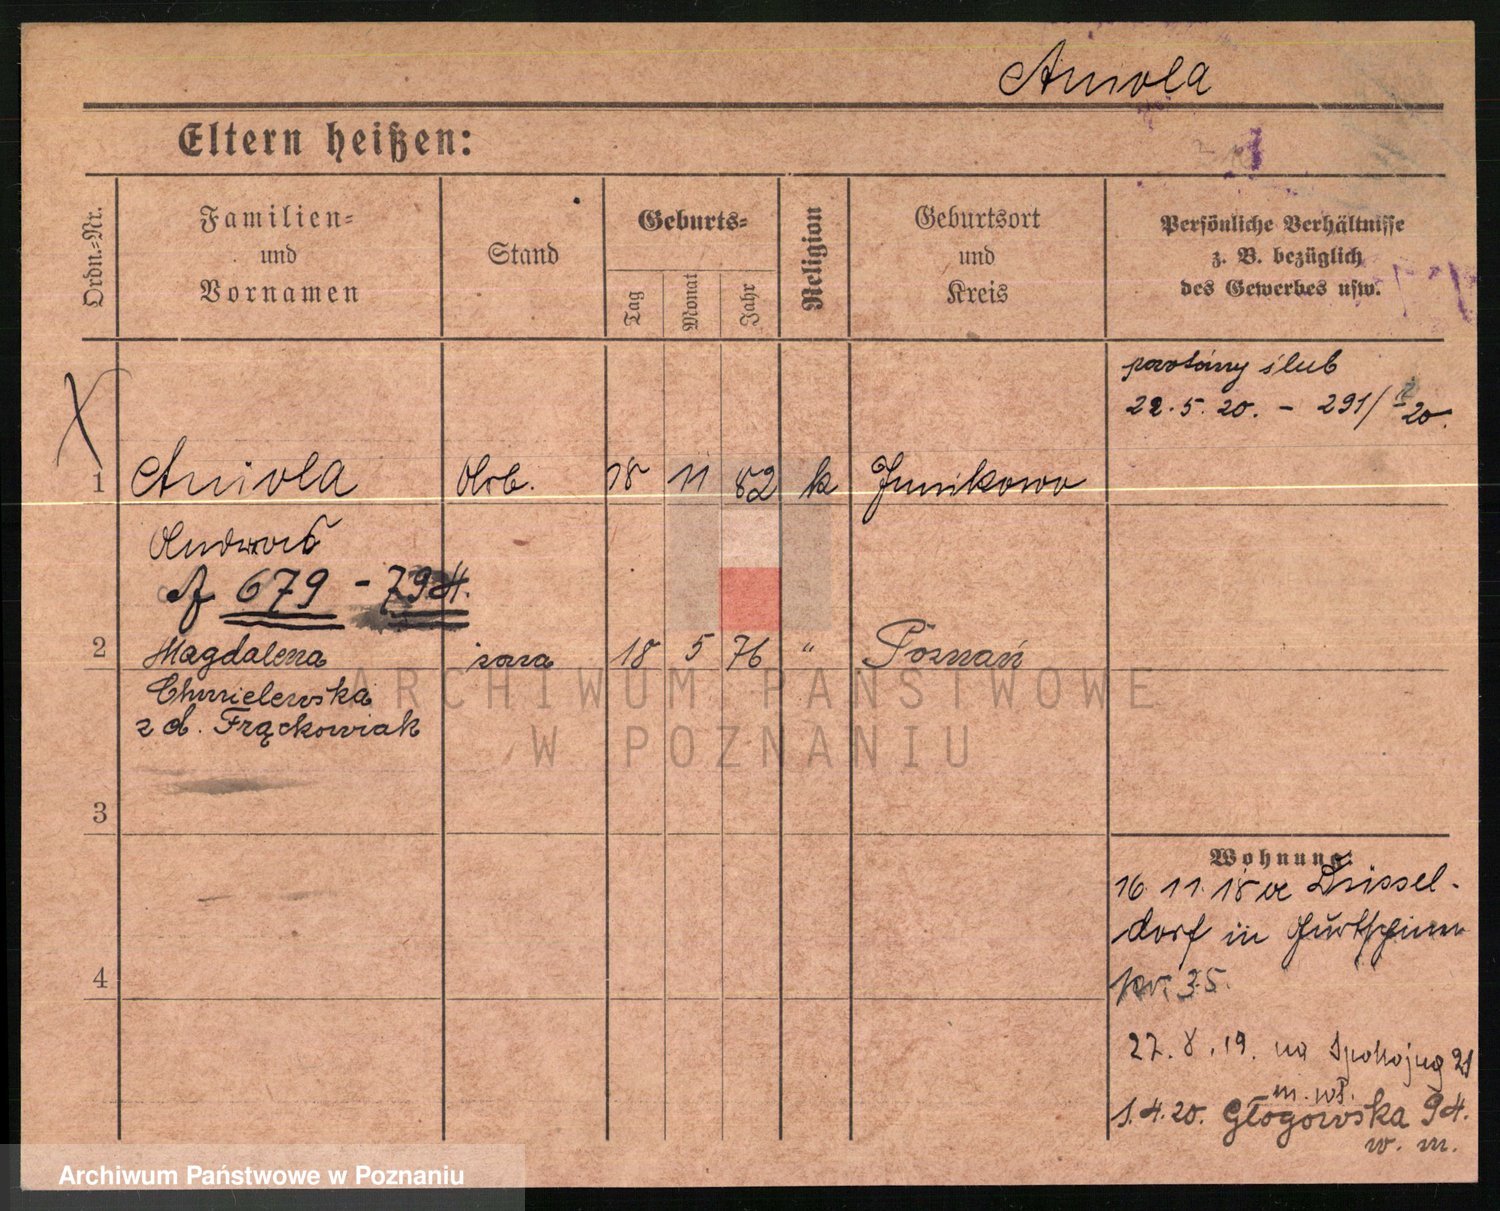 Aniola
Eltern heißen:
Ordn.-Nr.
Familien-
und
Vornamen
Stand
Geburts-
Tag
Monat
Jahr
Religion
Geburtsort
und
Kreis
Persönliche Verhältnisse
z. B. bezüglich
des Gewerbes usw.
powtórny ślub
22.5.20. - 291/20.
1 Aniola Arb. 18 11 82 k Junikowo
Andreas
679 - 794.
2 Magdalena żona 18 5 76 " Poznań
Chmielewska
z d. Frąckowiak
ARCHIWUM PAŃSTWOWE
W POZNANIU
3
Wohnung
16 11 18 Düssel-
dorf in
nr. 35.
4
27.8.19. na Spokojną 21
m. wł.
1.4.20. Głogowska 94.
w. m.
Archiwum Państwowe w Poznaniu